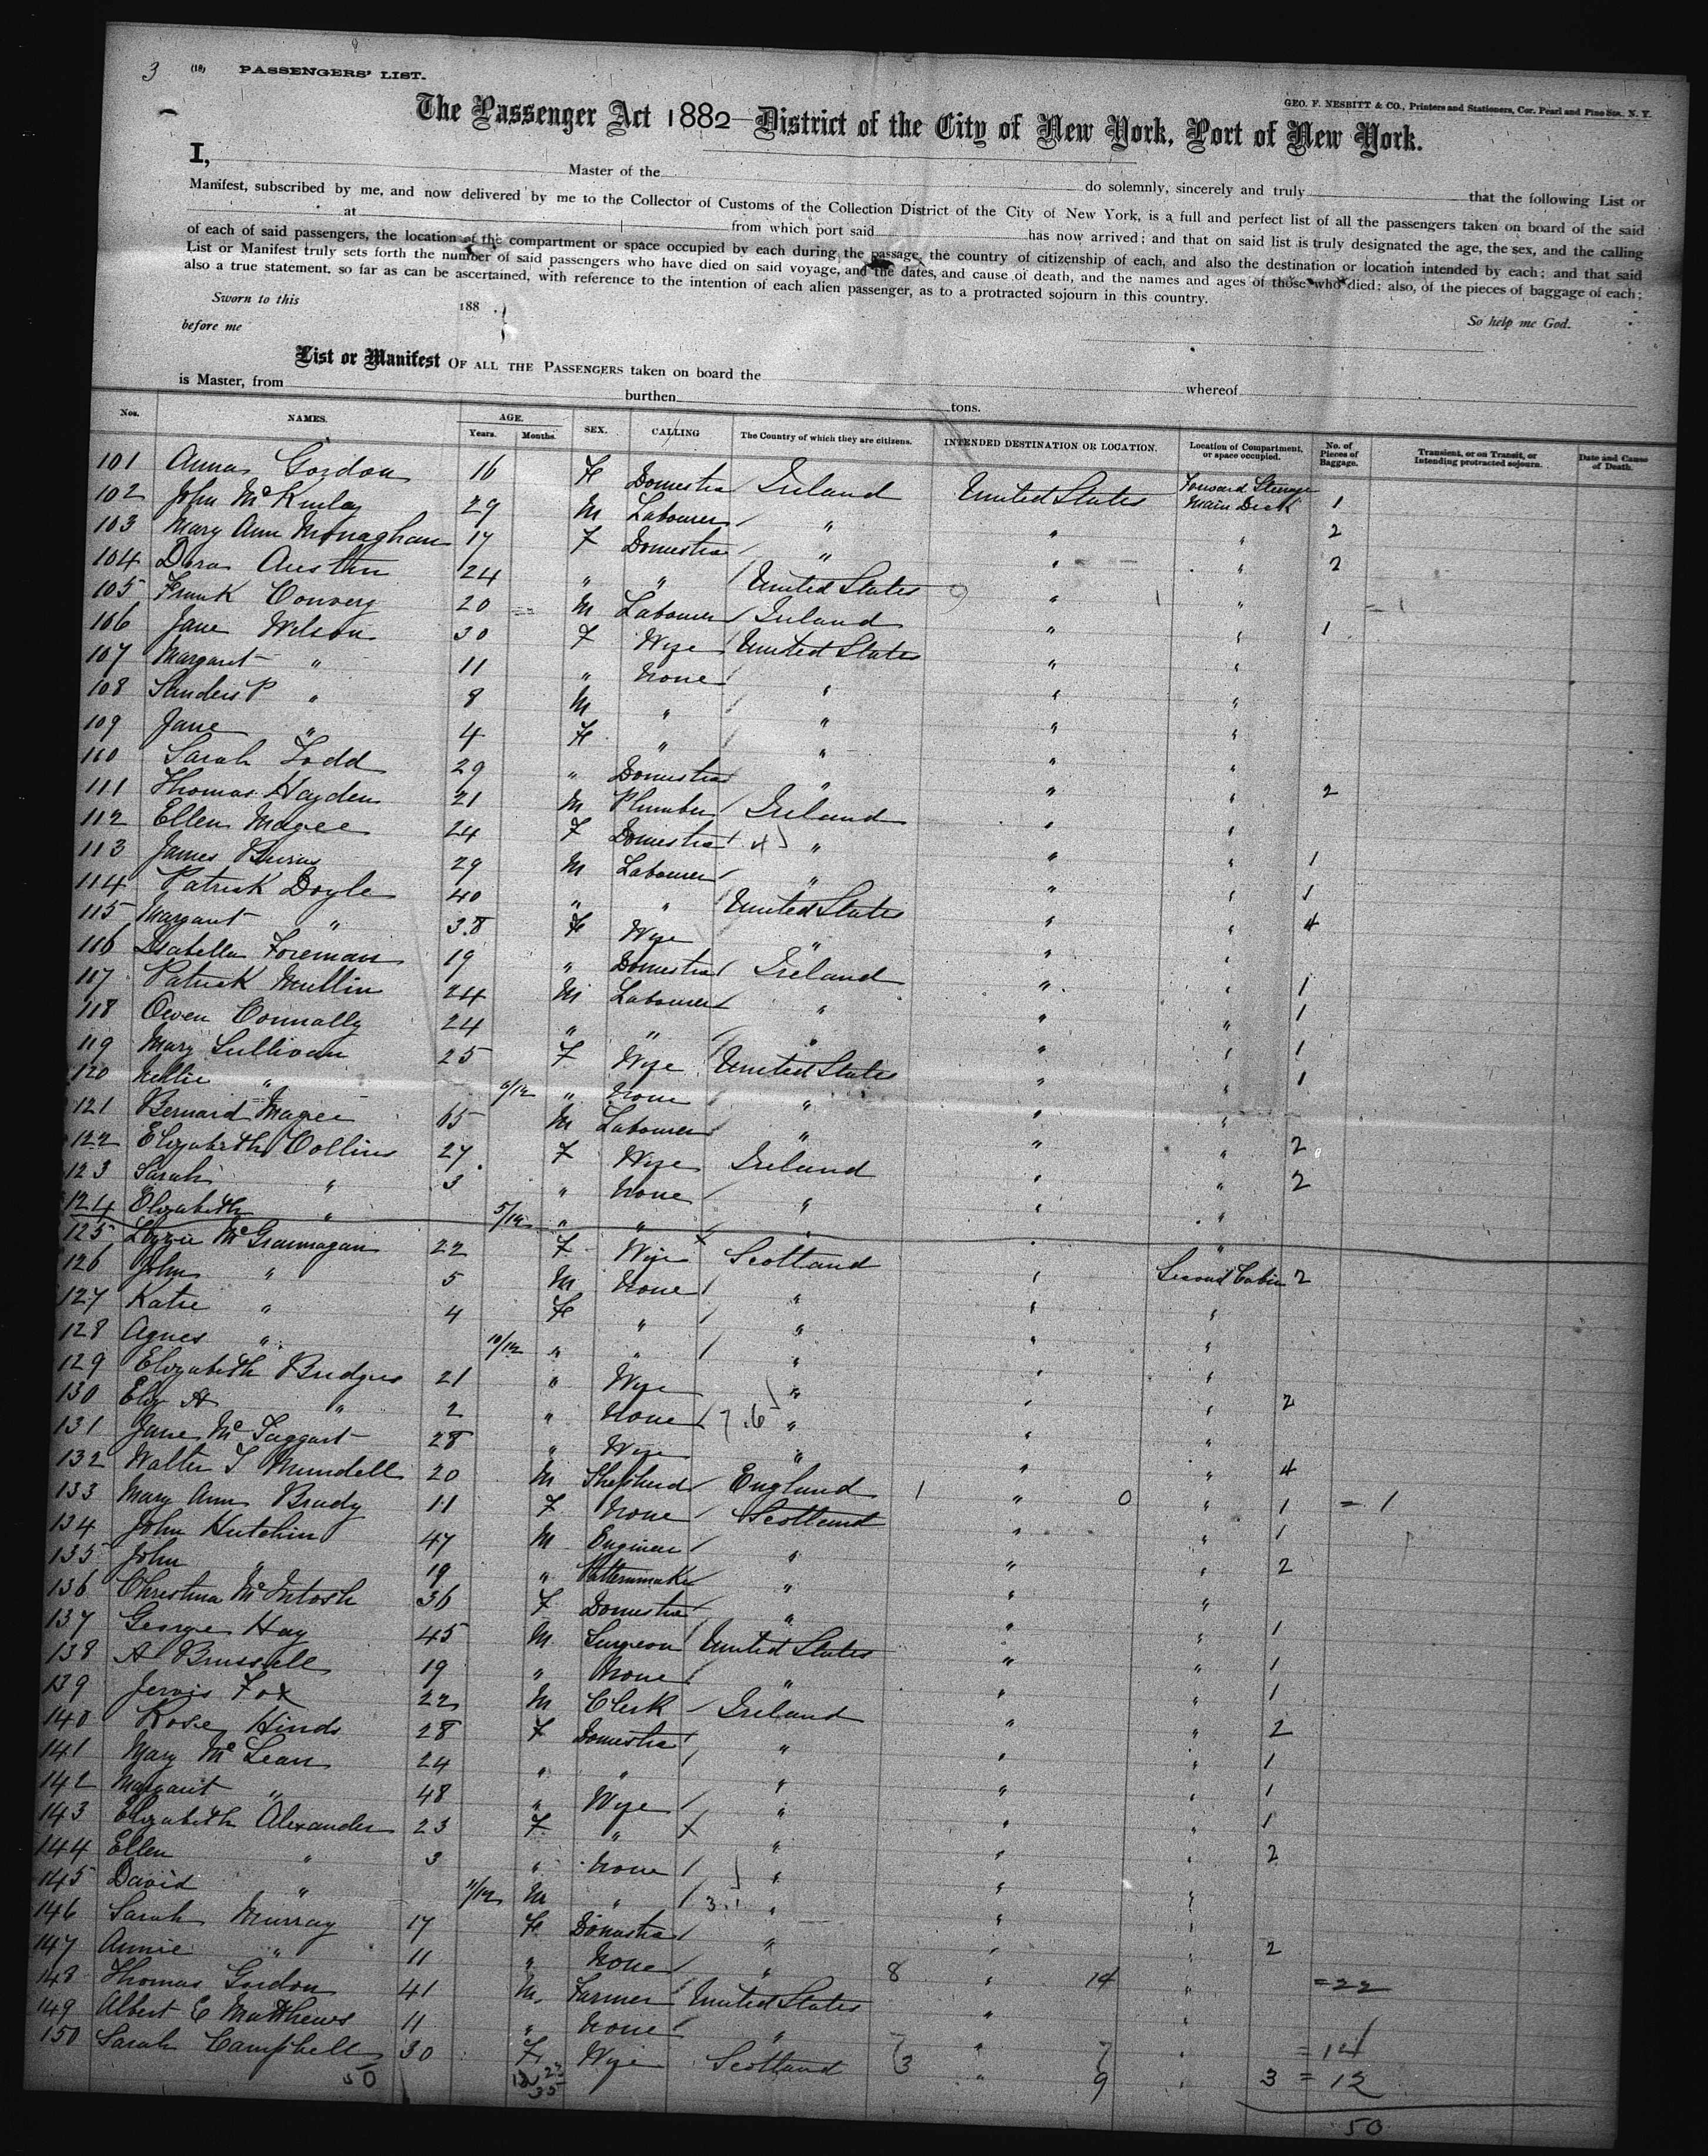 3 (18) PASSENGERS' LIST.
GEO. F. NESBITT & CO., Printers and Stationers, Cor. Pearl and Pine Sts. N. Y.
The Passenger Act 1882 District of the City of New York, Port of New York.
I, Master of the do solemnly, sincerely and truly that the following List or
Manifest, subscribed by me, and now delivered by me to the Collector of Customs of the Collection District of the City of New York, is a full and perfect list of all the passengers taken on board of the said
at from which port said has now arrived; and that on said list is truly designated the age, the sex, and the calling
of each of said passengers, the location of the compartment or space occupied by each during the passage, the country of citizenship of each, and also the destination or location intended by each; and that said
List or Manifest truly sets forth the number of said passengers who have died on said voyage, and the dates, and cause of death, and the names and ages of those who died; also, of the pieces of baggage of each;
also a true statement, so far as can be ascertained, with reference to the intention of each alien passenger, as to a protracted sojourn in this country.
Sworn to this 188 . So help me God.
before me
List or Manifest OF ALL THE PASSENGERS taken on board the whereof
is Master, from burthen tons.
Nos. NAMES. AGE. Years. Months. SEX. CALLING The Country of which they are citizens. INTENDED DESTINATION OR LOCATION. Location of Compartment, or space occupied. No. of Pieces of Baggage. Transient, or on Transit, or Intending protracted sojourn. Date and Cause of Death.
101 Anna Gordon 16 Fe Domestic Ireland United States Forward Steerage Main Deck 1
102 John McKinlay 29 M Labourer " " " 2
103 Mary Ann Monaghan 17 F Domestic " " " 2
104 Dora Austin 24 " " United States " "
105 Frank Convery 20 M Labourer Ireland " " 1
106 Jane Wilson 30 F Wife United States " "
107 Margaret " 11 " None " " "
108 Sanders P " 8 M " " " "
109 Jane " 4 Fe " " " "
110 Sarah Todd 29 " Domestic " " " 2
111 Thomas Hayden 21 M Plumber Ireland " "
112 Ellen Magee 24 F Domestic " " " 1
113 James Burns 29 M Labourer " " " 1
114 Patrick Doyle 40 " " United States " " 4
115 Margaret " 38 Fe Wife " " "
116 Isabella Foreman 19 " Domestic Ireland " " 1
117 Patrick Mullin 24 M Labourer " " " 1
118 Owen Connolly 24 " " " " " 1
119 Mary Sullivan 25 F Wife United States " " 1
120 Nellie " 6/12 " None " " "
121 Bernard Magee 65 M Labourer " " " 2
122 Elizabeth Collins 27 F Wife Ireland " " 2
123 Sarah " 3 " None " " "
124 Elizabeth " 5/12 " " " " "
125 Lizzie 22 F Wife Scotland " Second Cabin 2
126 John " 5 M None " " "
127 Katie " 4 Fe " " " "
128 Agnes " 10/12 " " " " "
129 Elizabeth Bridges 21 " Wife " " " 2
130 Eliz A " 2 " None " " "
131 Jane McTaggart 28 " Wife " " " 4
132 Walter T Mundell 20 M Shepherd England 1 " 0 " 1 = 1
133 Mary Ann Brady 11 F None Scotland " " 1
134 John Hutchin 47 M Engineer " " " 2
135 John " 19 " Patternmaker " " "
136 Christina McIntosh 36 F Domestic " " " 1
137 George Hay 45 M Surgeon United States " " 1
138 A 19 " None " " " 1
139 Jervis Fox 22 M Clerk Ireland " " 2
140 Rose Hinds 28 F Domestic " " " 1
141 Mary McLean 24 " " " " " 1
142 Margaret " 48 " Wife " " " 1
143 Elizabeth Alexander 23 F " " " " 2
144 Ellen " 3 " None " " "
145 David " 11/12 M " " " "
146 Sarah Murray 17 Fe Domestic " " " 2
147 Annie " 11 " None " 8 " 14 " = 22
148 Thomas Gordon 41 M Farmer United States " "
149 Albert E Matthews 11 " None " 7 " 7 " = 14
150 Sarah Campbell 30 F Wife Scotland 3 " 9 " 3 = 12
50
50